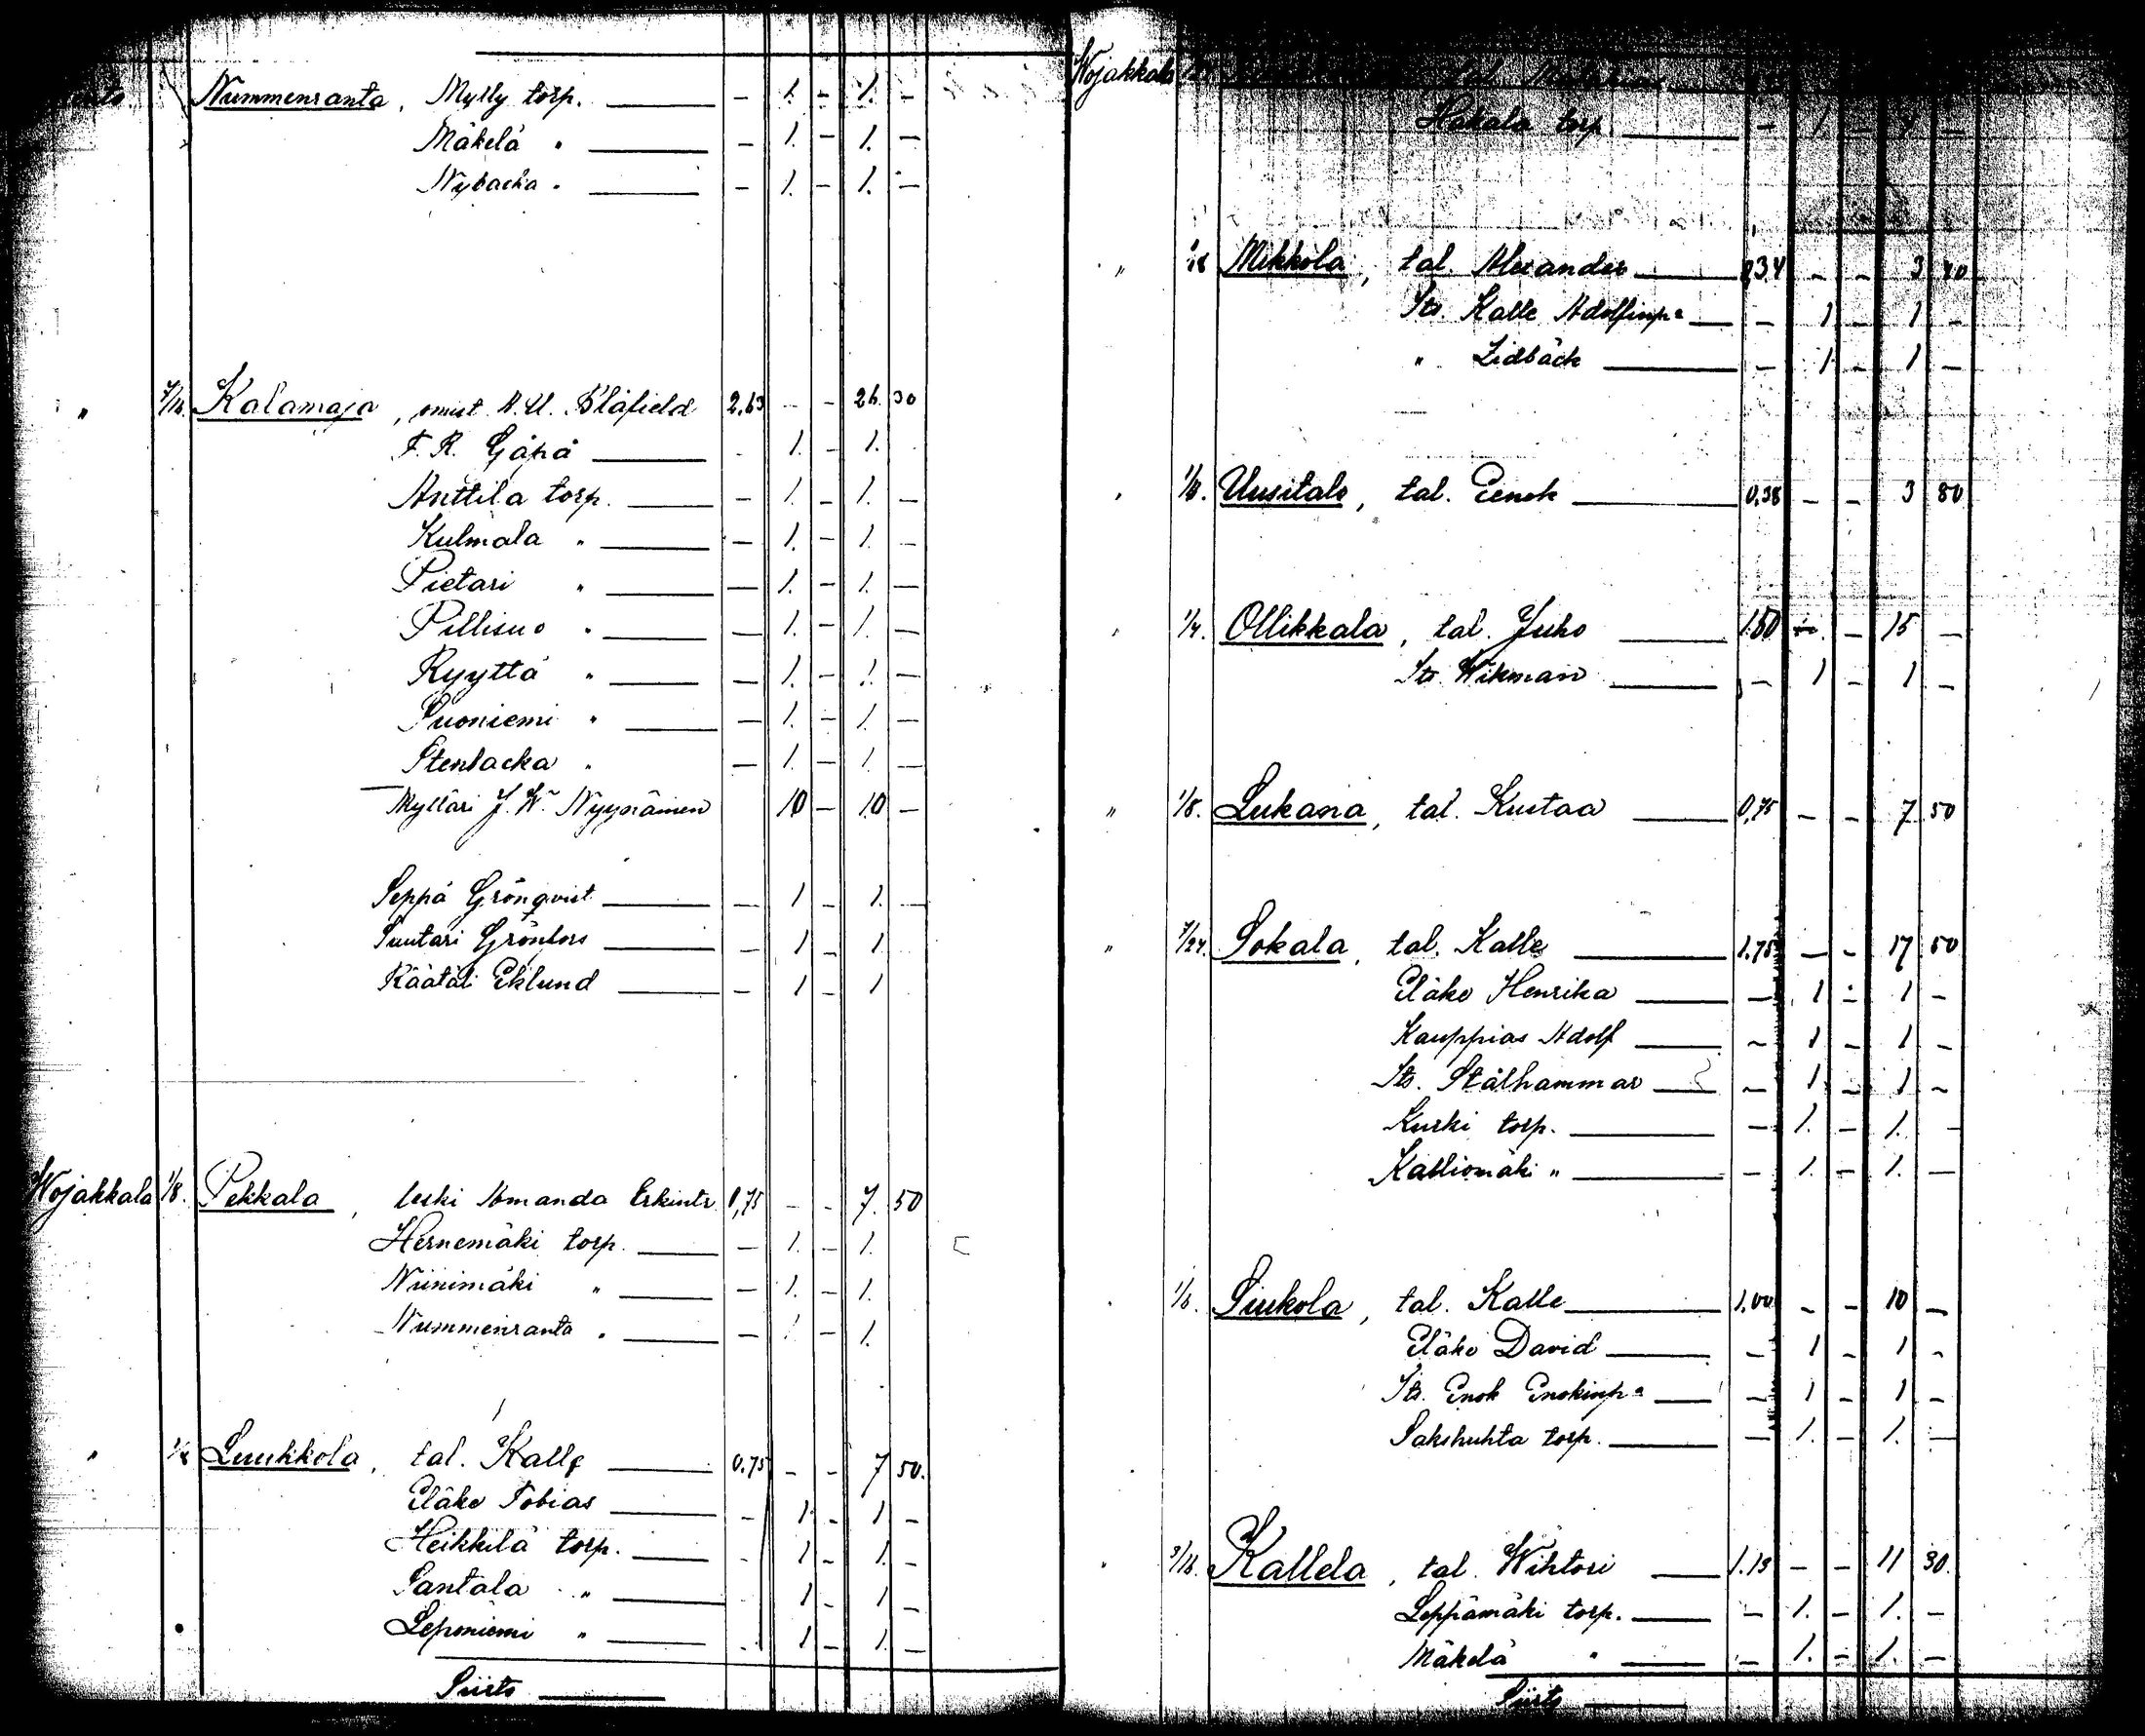 Nummenranta, Mylly torp. — 1. — 1. —
Mäkelä " — 1. — 1. —
Nybacka " — 1. — 1. —
" 7/16. Kalamaja, omist. A. U. Blåfield 2,63 — — 26. 30
F. R. Gåpå 1. 1.
Anttila torp. — 1. — 1. —
Kulmala " — 1. — 1. —
Pietari " — 1. — 1. —
Pillisuo " — 1. — 1. —
Ryyttä " — 1. — 1. —
Suoniemi " — 1. — 1. —
Stenbacka " — 1. — 1. —
Mylläri J. W. Nyynäinen 10 — 10 —
Seppä Grönqvist — 1 — 1. —
Suutari Grönfors — 1 — 1
Räätäli Eklund — 1 — 1
Wojakkala 1/8. Pekkala, leski Amanda Erkintr. 0,75 — — 7. 50
Hernemäki torp. — 1. — 1.
Niinimäki " — 1. — 1.
Nummenranta " — 1 — 1.
" 1/8 Luukkola, tal. Kalle 0.75 — — 7 50.
Eläke Tobias — 1. — 1 —
Heikkilä torp. — 1 — 1. —
Santala " 1 — 1 —
Leponiemi " 1 — 1. —
Siirto
Wojakkala
Hakala torp. — 1. — 1 —
" Mikkola, tal. Alexander 0,34 — — 3 40
Its. Kalle Adolfinp. — 1 — 1 —
" Lidbäck — 1 — 1 —
" Uusitalo, tal. Eenok 0,38 — — 3 80
" 1/4. Ollikkala, tal. Juho 1.50 — — 15 —
Its. Wikman — 1 — 1 —
" 1/8. Lukana, tal. Kustaa 0,75 — — 7 50
" 7/24. Sokala, tal. Kalle 1.75 — — 17 50
Eläke Henrika — 1 — 1 —
Kauppias Adolf — 1 — 1 —
Its. Stålhammar — 1 — 1 —
Kurki torp. — 1. — 1. —
Kalliomäki " — 1. — 1. —
" 1/6. Siukola, tal. Kalle 1.00 — — 10 —
Eläke David — 1 — 1 —
Its. Enok Enokinp. — 1 — 1 —
Sakshuhta torp. — 1. — 1. —
" 3/16. Kallela, tal. Wihtori 1.13 — — 11 30.
Leppämäki torp. — 1. — 1. —
Mäkelä " — 1. — 1. —
Siirto